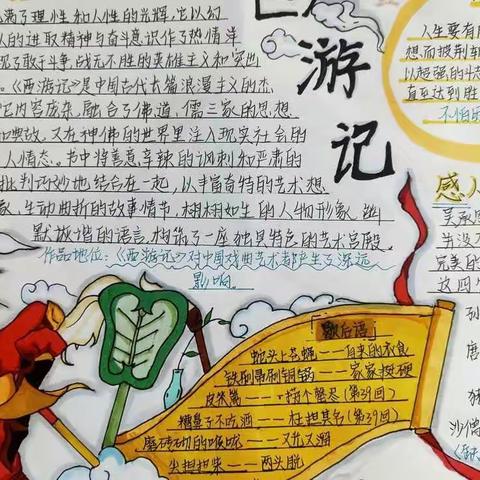 满了理性和人性的光辉,它以幻
人的进取精神与奋斗意识作了热情洋
现了敢于斗争,战无不胜的英雄主义和突出
。《西游记》是中国古代长篇浪漫主义的杰
它内容庞杂,融合了佛道、儒三家的思想
和教义,又在神佛的世界里注入现实社会的
人情态。书中将善意辛辣的讽刺和严肃的
批判巧妙地结合在一起,以丰富奇特的艺术想
象、生动曲折的故事情节,栩栩如生的人物形象,幽
默诙谐的语言,构筑了一座独具特色的艺术宫殿。
作品地位:《西游记》对中国戏曲艺术都产生了深远
影响
游
记
人生要有
想而披荆
以超强的斗志
直至达到胜
不怕
感
吴承恩
并没
完美的
这四
孙
唐
猪
沙僧
歇后语
蛇头上苍蝇——自来的衣食
铁刷帚刷铜锅——家家挺硬
皮笊篱——一捞个罄尽(第39回)
糟鼻子不吃酒——枉担其名(第39回)
磨砖砌的喉咙——又光又溜
尖担担柴——两头脱